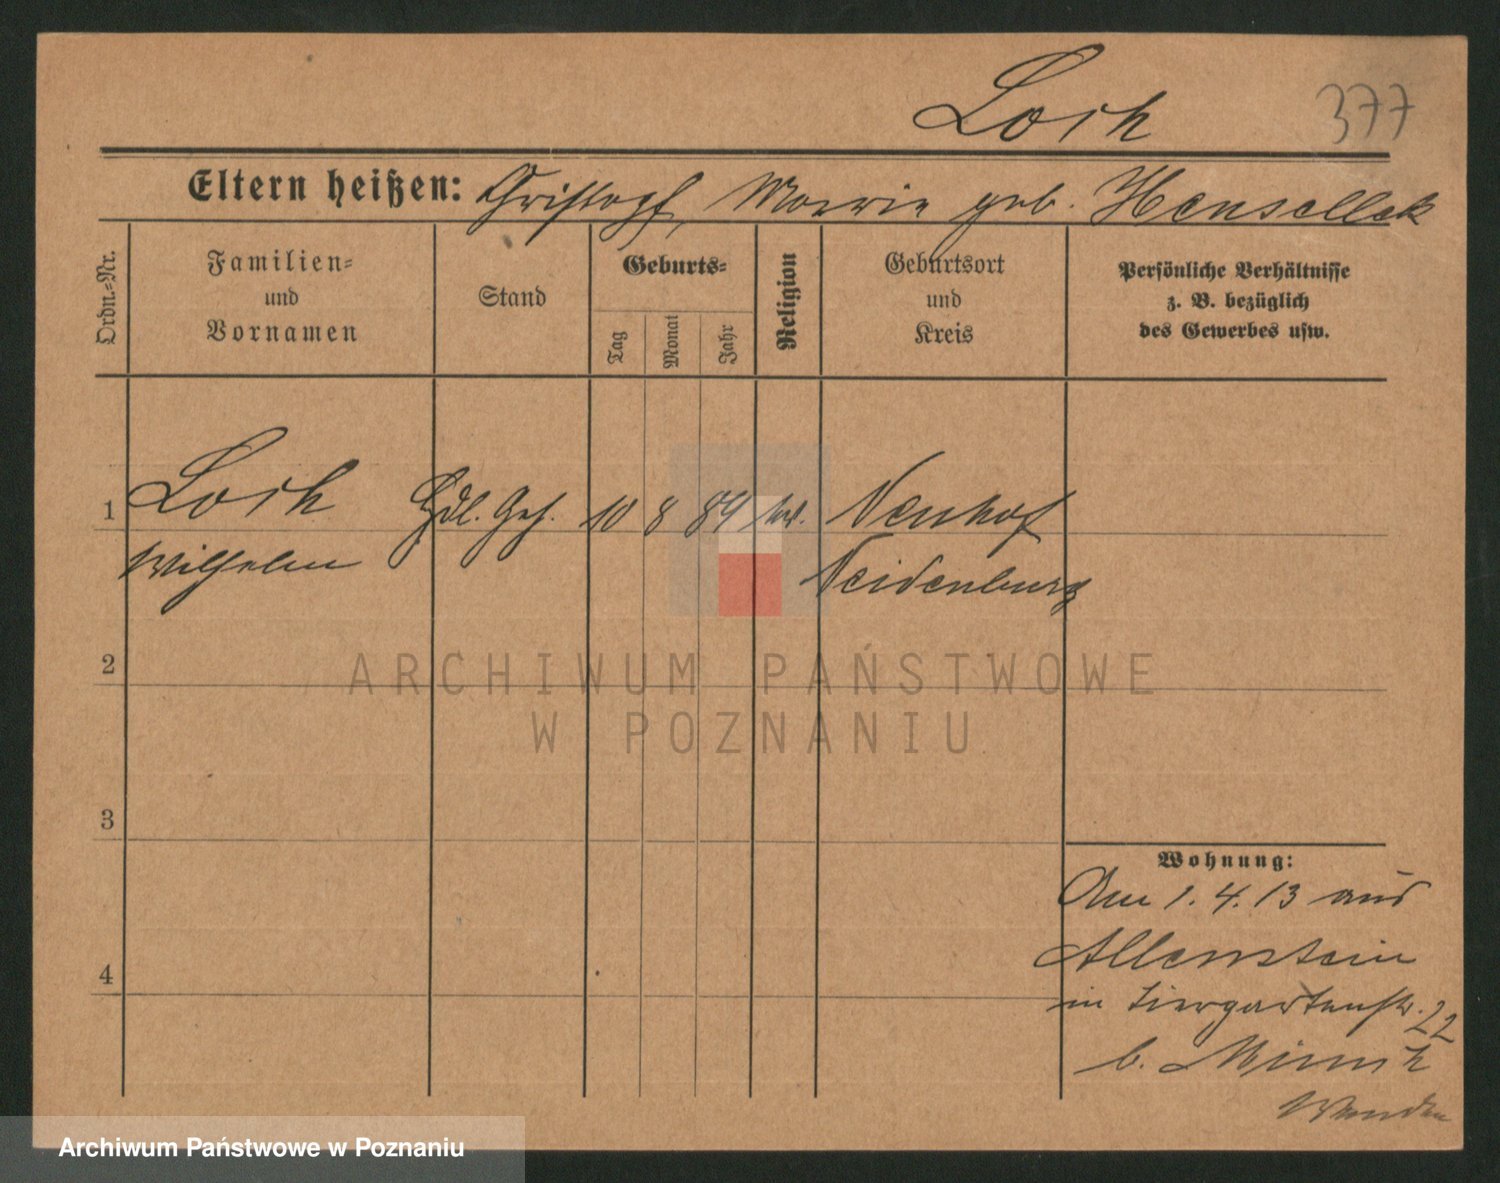 Loch
377
Eltern heißen: Christoph, Marie geb. Hensellek
Ordn.-Nr.
Familien-
und
Vornamen
Stand
Geburts-
Tag
Monat
Jahr
Religion
Geburtsort
und
Kreis
Persönliche Verhältnisse
z. B. bezüglich
des Gewerbes usw.
1
Loch
Wilhelm
Hdl. Geh.
10
8
89
Neuhof
Neidenburg
2
3
4
Wohnung:
Am 1. 4. 13 aus
Allenstein
in Tiergartenstr. 22
b.
Wenden
ARCHIWUM PAŃSTWOWE
W POZNANIU
Archiwum Państwowe w Poznaniu